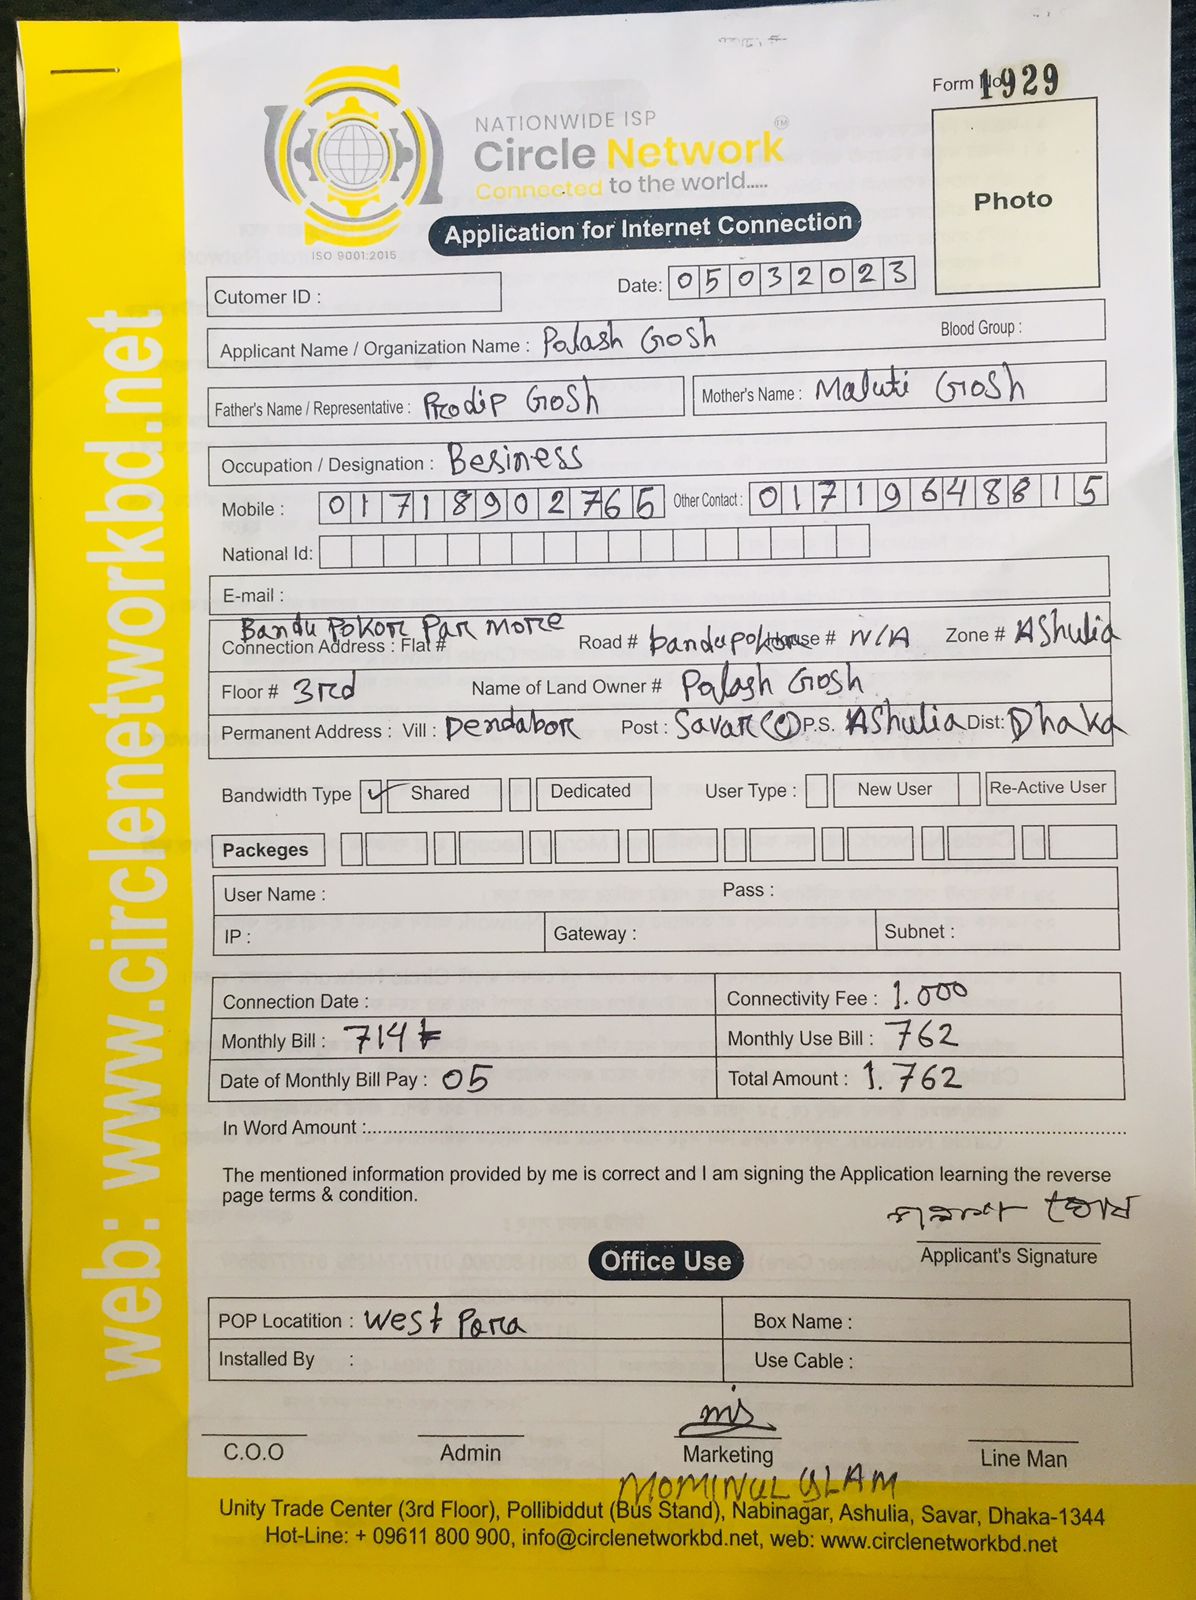 Form No 1929
NATIONWIDE ISP
Circle Network™
Connected to the world.....
ISO 9001:2015
Application for Internet Connection
Photo
Cutomer ID :
Date: 05032023
Applicant Name / Organization Name : Palash Gosh Blood Group :
Father's Name / Representative : Prodip Gosh Mother's Name : Maluti Gosh
Occupation / Designation : Besiness
Mobile : 01718902765 Other Contact : 01719648815
National Id:
E-mail :
Bandu Pokor Par more
Connection Address : Flat # Road # bandupokore House # N/A Zone # Ashulia
Floor # 3rd Name of Land Owner # Palash Gosh
Permanent Address : Vill : Dendabor Post : Savar P.S. Ashulia Dist: Dhaka
Bandwidth Type ✓ Shared Dedicated User Type : New User Re-Active User
Packeges
User Name : Pass :
IP : Gateway : Subnet :
Connection Date : Connectivity Fee : 1.000
Monthly Bill : 714 Monthly Use Bill : 762
Date of Monthly Bill Pay : 05 Total Amount : 1.762
In Word Amount :
The mentioned information provided by me is correct and I am signing the Application learning the reverse
page terms & condition.
Applicant's Signature
Office Use
POP Locatition : West Para Box Name :
Installed By : Use Cable :
C.O.O Admin Marketing Line Man
Unity Trade Center (3rd Floor), Pollibiddut (Bus Stand), Nabinagar, Ashulia, Savar, Dhaka-1344
Hot-Line: + 09611 800 900, info@circlenetworkbd.net, web: www.circlenetworkbd.net
web: www.circlenetworkbd.net